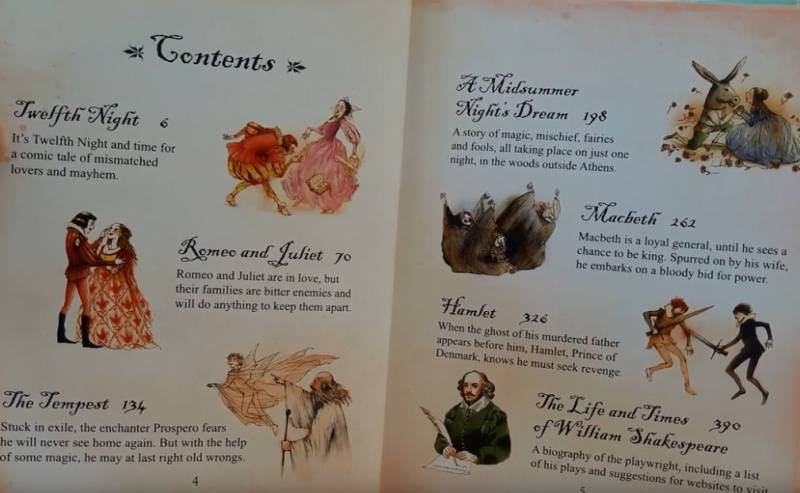 Contents
Twelfth Night 6
It's Twelfth Night and time for
a comic tale of mismatched
lovers and mayhem.
Romeo and Juliet 70
Romeo and Juliet are in love, but
their families are bitter enemies and
will do anything to keep them apart.
The Tempest 134
Stuck in exile, the enchanter Prospero fears
he will never see home again. But with the help
of some magic, he may at last right old wrongs.
4
A Midsummer
Night's Dream 198
A story of magic, mischief, fairies
and fools, all taking place on just one
night, in the woods outside Athens.
Macbeth 262
Macbeth is a loyal general, until he sees a
chance to be king. Spurred on by his wife,
he embarks on a bloody bid for power.
Hamlet 326
When the ghost of his murdered father
appears before him, Hamlet, Prince of
Denmark, knows he must seek revenge.
The Life and Times 390
of William Shakespeare
A biography of the playwright, including a list
of his plays and suggestions for websites to visit
5